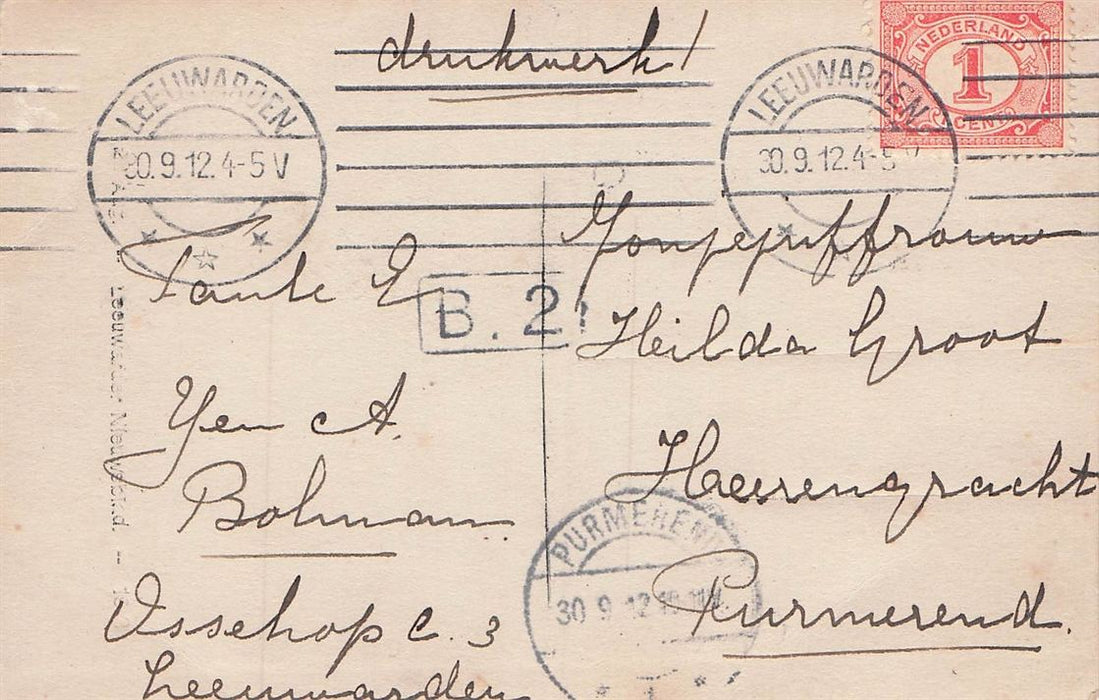 drukwerk!
NEDERLAND
1
CENT
LEEUWARDEN
30.9.12.4-5 V
LEEUWARDEN
30.9.12.4-5 V
Tante E
B. 2
Yen A.
Bohman
Ossehop C. 3
Leeuwarden
Jongejuffrouw
Hilda Groot
Heerengracht
Purmerend.
PURMEREND
30 9 12
Leeuwarden Nieuwestad.